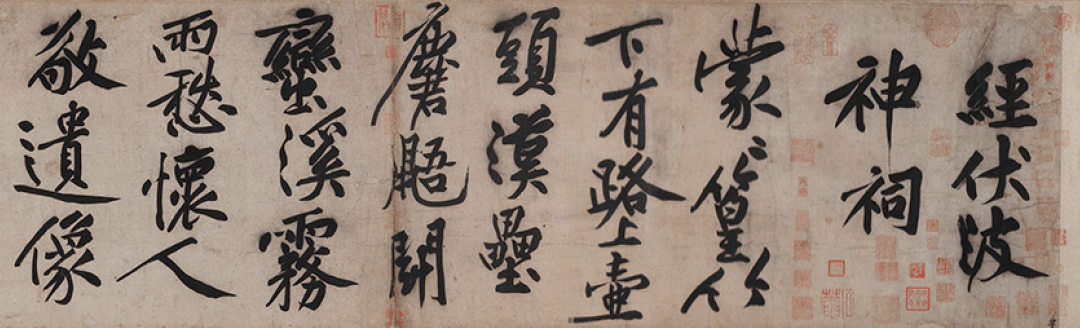 經伏波
神祠
蒙〻篁竹
下有路上壺
頭漢壘
麏鼯鬪
蠻溪霧
雨愁懷人
敬遺像